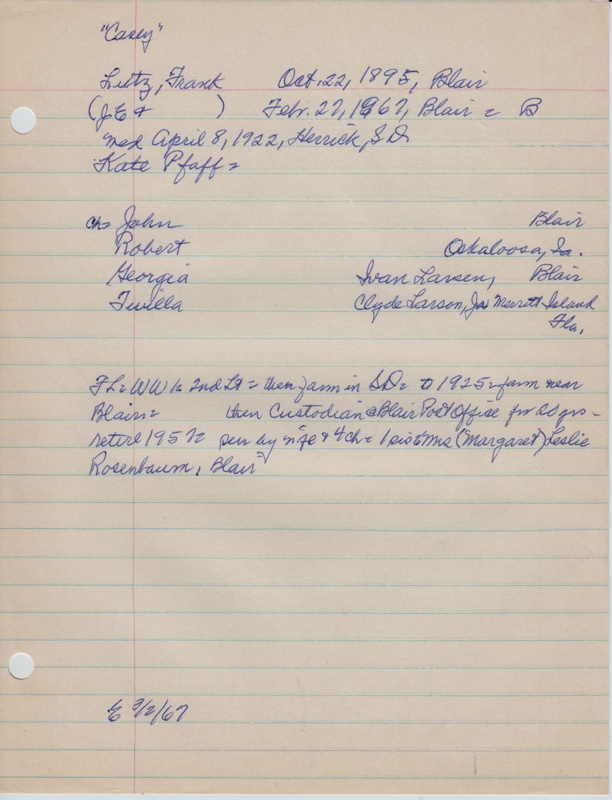 "Casey"
Lutz, Frank Oct. 22, 1895, Blair
(J E & ) Febr. 27, 1967, Blair = B
med April 8, 1922, Herrick, S.D.
Kate Pfaff =
ch= John Blair
Robert Oskaloosa, Ia.
Georgia Ivan Larsen, Blair
Twilla Clyde Larson, Jr Merritt Island
Fla.
FL= WW 1= 2nd Lt = then farm in S.D.= to 1925= farm near
Blair= then Custodian @ Blair Post Office for 20 yrs-
retire 1957= sur by wife & 4 ch= 1 sis= "Mrs (Margaret) Leslie
Rosenbaum, Blair"
E 3/2/67